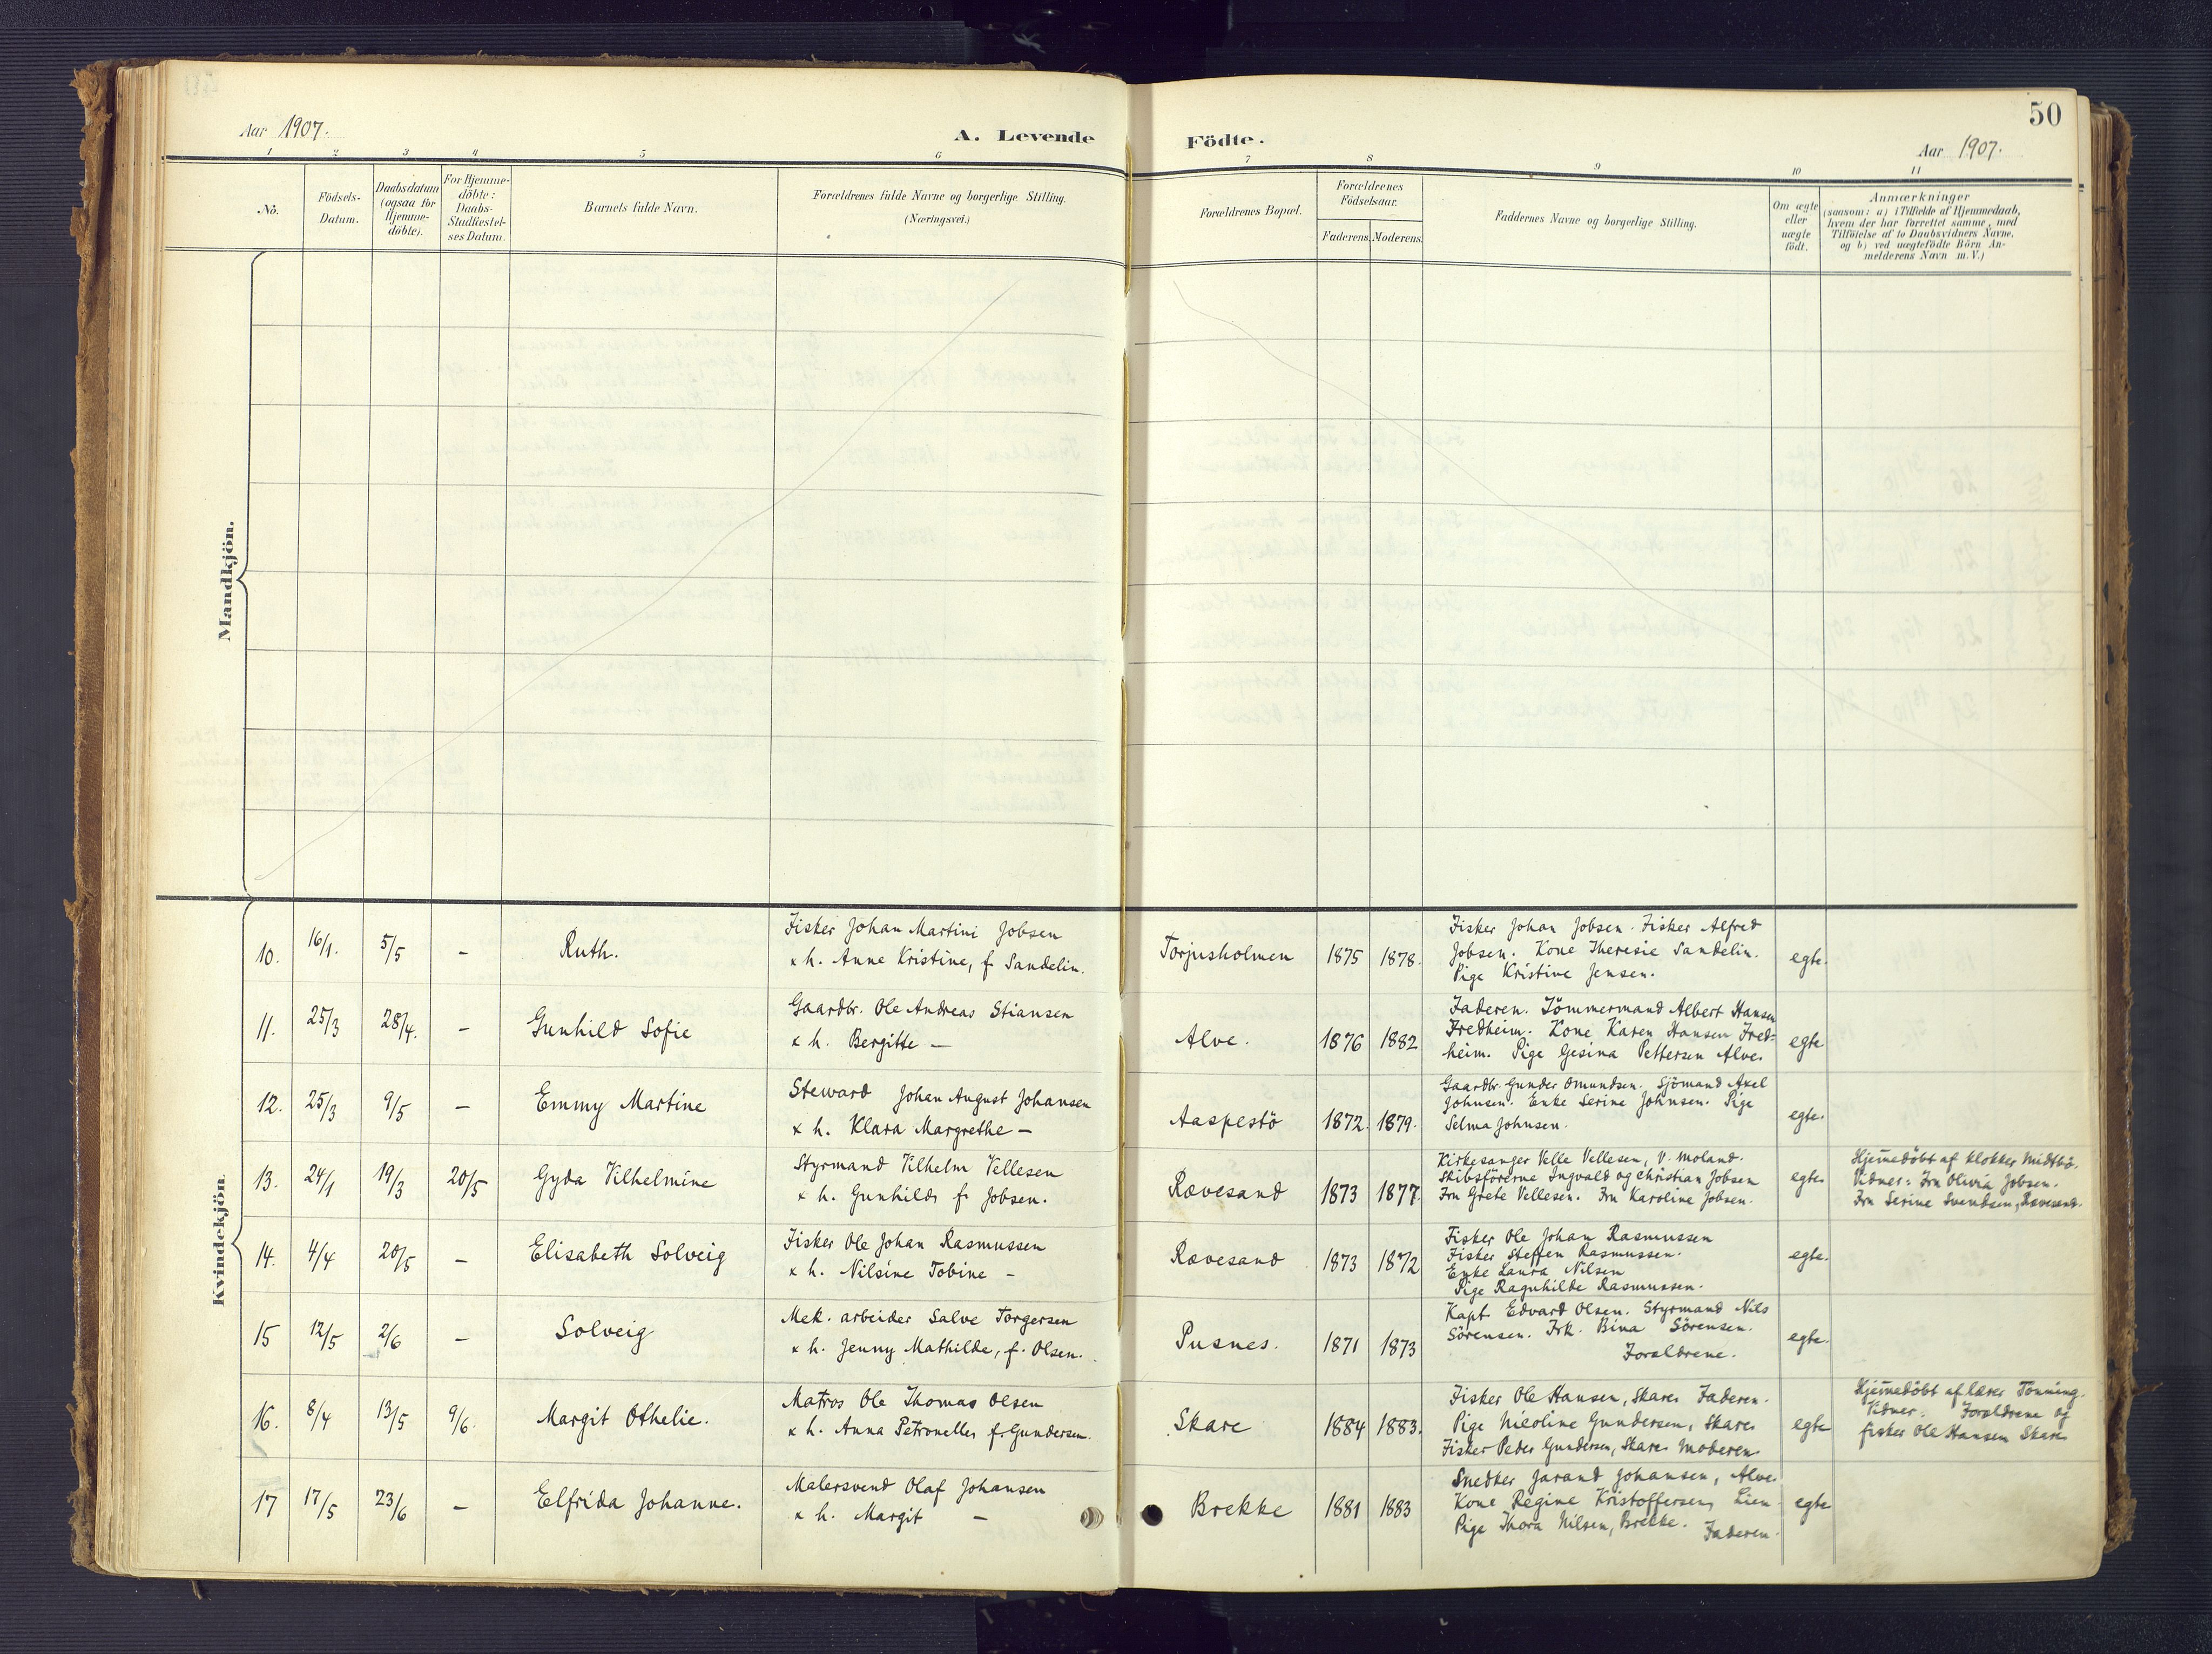 50
Aar 1907.
A. Levende Födte.
Aar 1907.
1 2 3 4 5 6 7 8 9 10 11
No.
Födsels-
Datum.
Daabsdatum
(ogsaa for
Hjemme-
döbte).
For Hjemme-
döbte:
Daabs-
Stadfæstel-
ses Datum.
Barnets fulde Navn.
Forældrenes fulde Navne og borgerlige Stilling.
(Næringsvei.)
Forældrenes Bopæl.
Forældrenes
Födselsaar.
Faderens. Moderens.
Faddernes Navne og borgerlige Stilling.
Om ægte
eller
uægte
födt.
Anmærkninger
(saasom: a) i Tilfælde af Hjemmedaab,
hvem der har forrettet samme, med
Tilföielse af to Daabsvidners Navne,
og b) ved uægtefödte Börn An-
melderens Navn m. V.)
Mandkjön.
Kvindekjön.
10. 16/1. 5/5 – Ruth.
Fisker Johan Martini Jobsen
x h. Anne Kristine, f. Sandelin.
Torjusholmen 1875 1878.
Fisker Johan Jobsen. Fisker Alfred
Jobsen. Kone Theresie Sandelin.
Pige Kristine Jensen.
egte.
11. 25/3 28/4. – Gunhild Sofie
Gaardbr. Ole Andreas Stiansen
x h. Bergitte –
Alve. 1876 1882
Faderen. Tömmermand Albert Hansen
Fredheim. Kone Karen Hansen Fred-
heim. Pige Gesina Pettersen Alve.
egte
12. 25/3 9/5 – Emmy Martine
Steward Johan August Johansen
x h. Klara Margrethe –
Aaspestö 1872. 1879.
Gaardbr. Gunder Omundsen. Sjömand Axel
Johnsen. Enke Serine Johnsen. Pige
Selma Johnsen.
egte.
13. 24/1 19/3 20/5 Gyda Vilhelmine
Styrmand Vilhelm Vellesen
x h. Gunhild f. Jobsen.
Rævesand 1873 1877.
Kirkesanger Velle Vellesen, V. Moland.
Skibsförerne Ingvald og Christian Jobsen
Fru Grete Vellesen. Fru Karoline Jobsen.
egte.
Hjemedöbt af klokker Midtbö.
Vidner: Fru Olivia Jobsen.
Fru Serine Svendsen, Rævesand.
14. 4/4 20/5 – Elisabeth Solveig
Fisker Ole Johan Rasmussen
x h. Nilsine Tobine –
Rævesand 1873 1872
Fisker Ole Johan Rasmussen
Fisker Steffen Rasmussen.
Enke Laura Nilsen
Pige Ragnhilde Rasmussen.
egte.
15 12/5 2/6 – Solveig
Mek. arbeider Salve Torgersen
x h. Jenny Mathilde, f. Olsen.
Pusnes. 1871 1873
Kapt. Edvard Olsen. Styrmand Nils
Sörensen. Frk. Bina Sörensen.
Forældrene.
egte.
16. 8/4 13/5 9/6. Margit Othelie.
Matros Ole Thomas Olsen
x h. Anna Petronelle, f. Gundersen.
Skare 1884 1883.
Fisker Ole Hansen, Skare. Faderen.
Pige Nicoline Gundersen, Skare.
Fisker Peder Gundersen, Skare. Moderen.
egte
Hjemedöbt af lærer Tönning.
Vidner: Forældrene og
fisker Ole Hansen Skare
17 17/5 23/6 – Elfrida Johanne.
Malersvend Olaf Johansen
x h. Margit –
Brekke 1881 1883
Snedker Jarand Johansen, Alve.
Kone Regine Kristoffersen, Lien
Pige Thora Nilsen, Brekke. Faderen.
egte